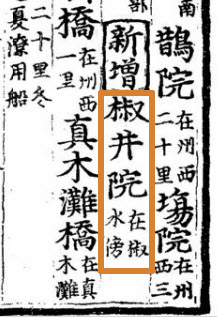 南
鵲院在州西二十里塲院在州西三
部
新增椒井院在椒水傍
橋在州西一里真木灘橋在真木灘
二十里冬
潦用船